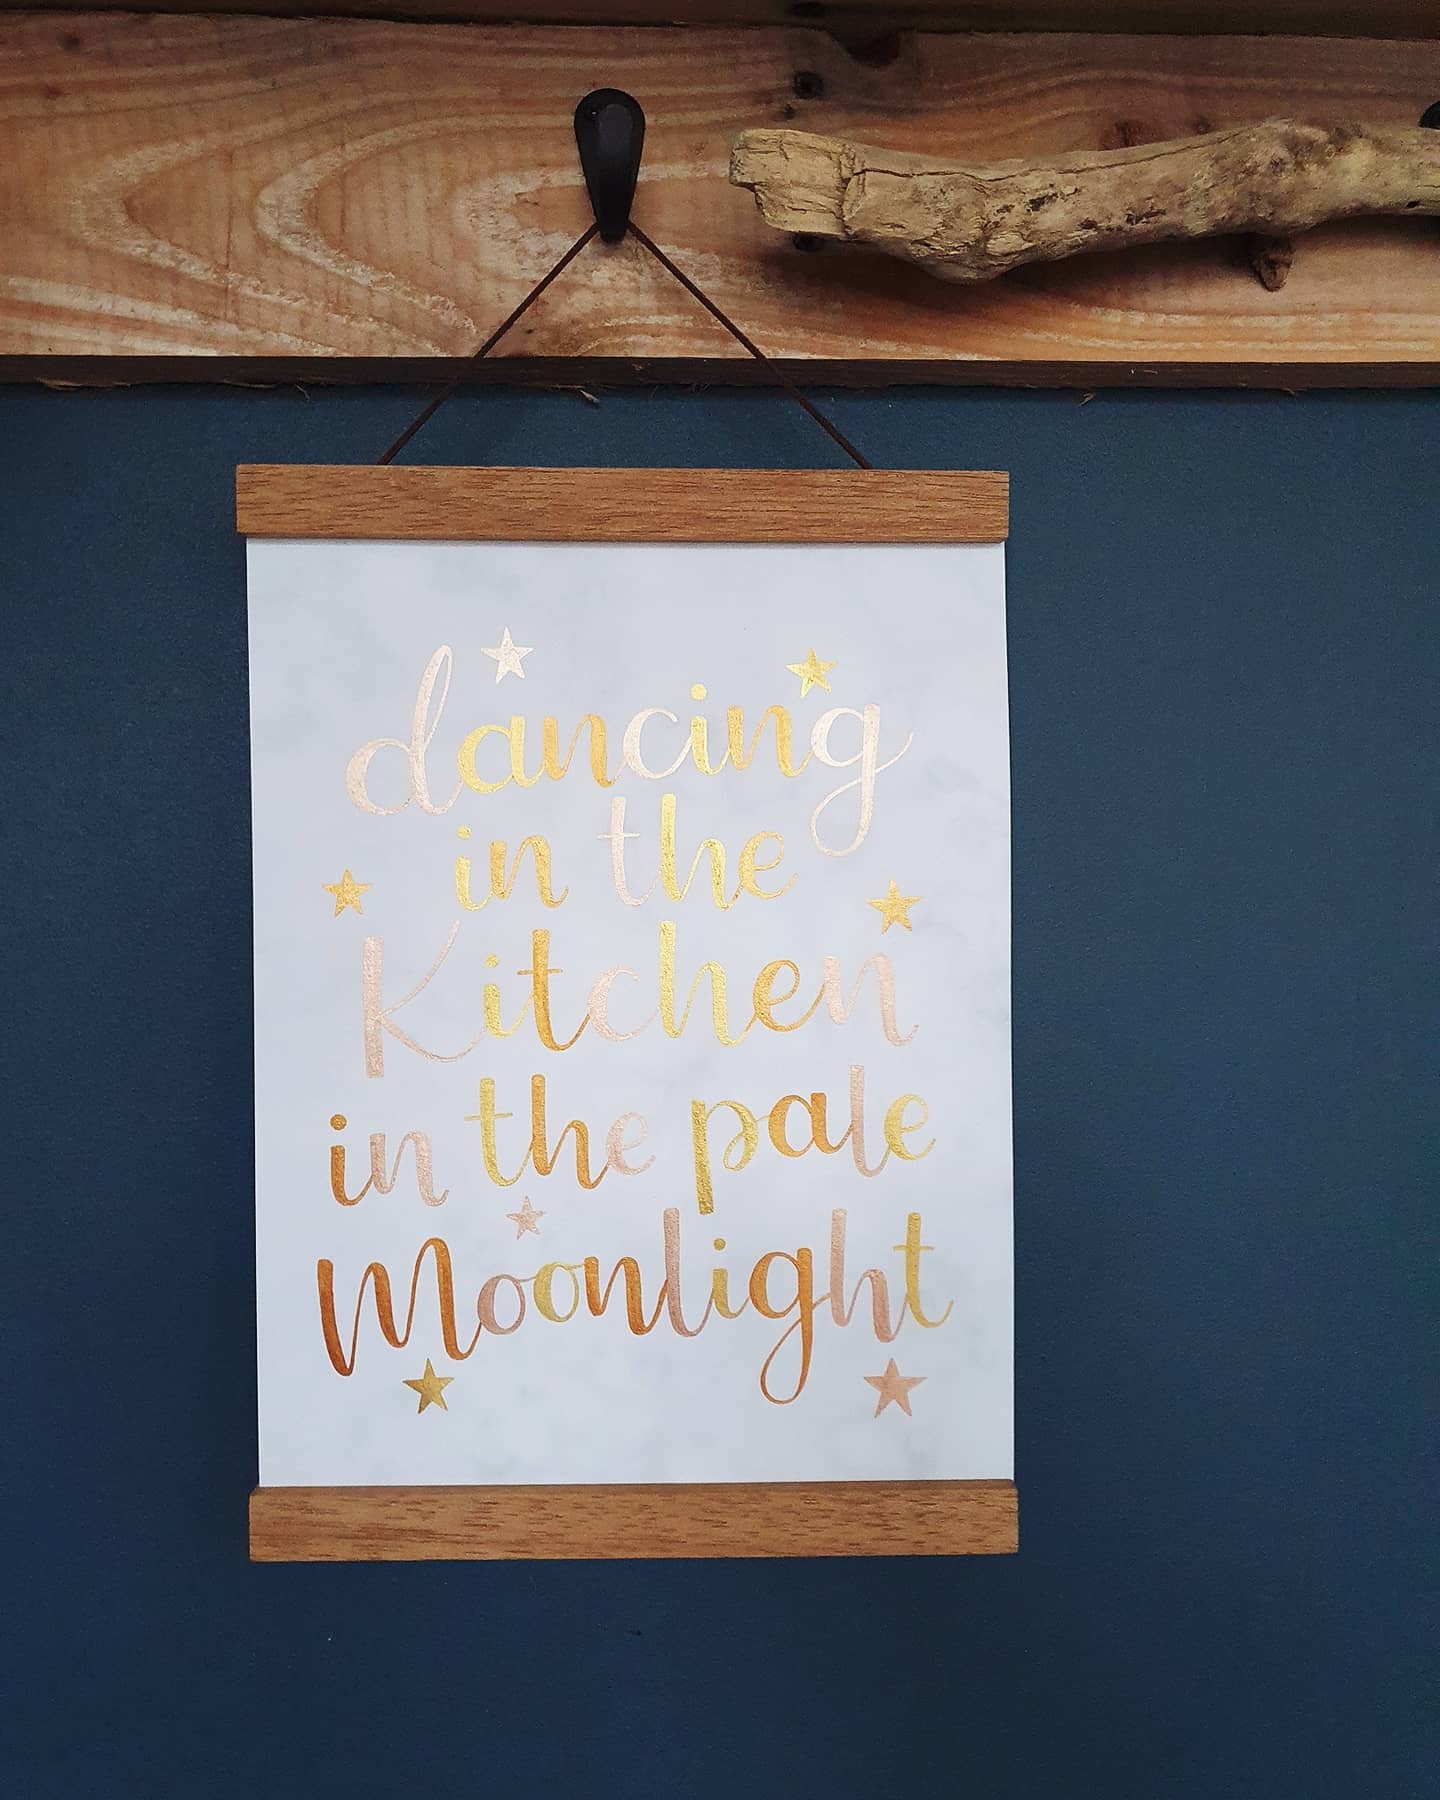 dancing
in the
Kitchen
in the pale
Moonlight